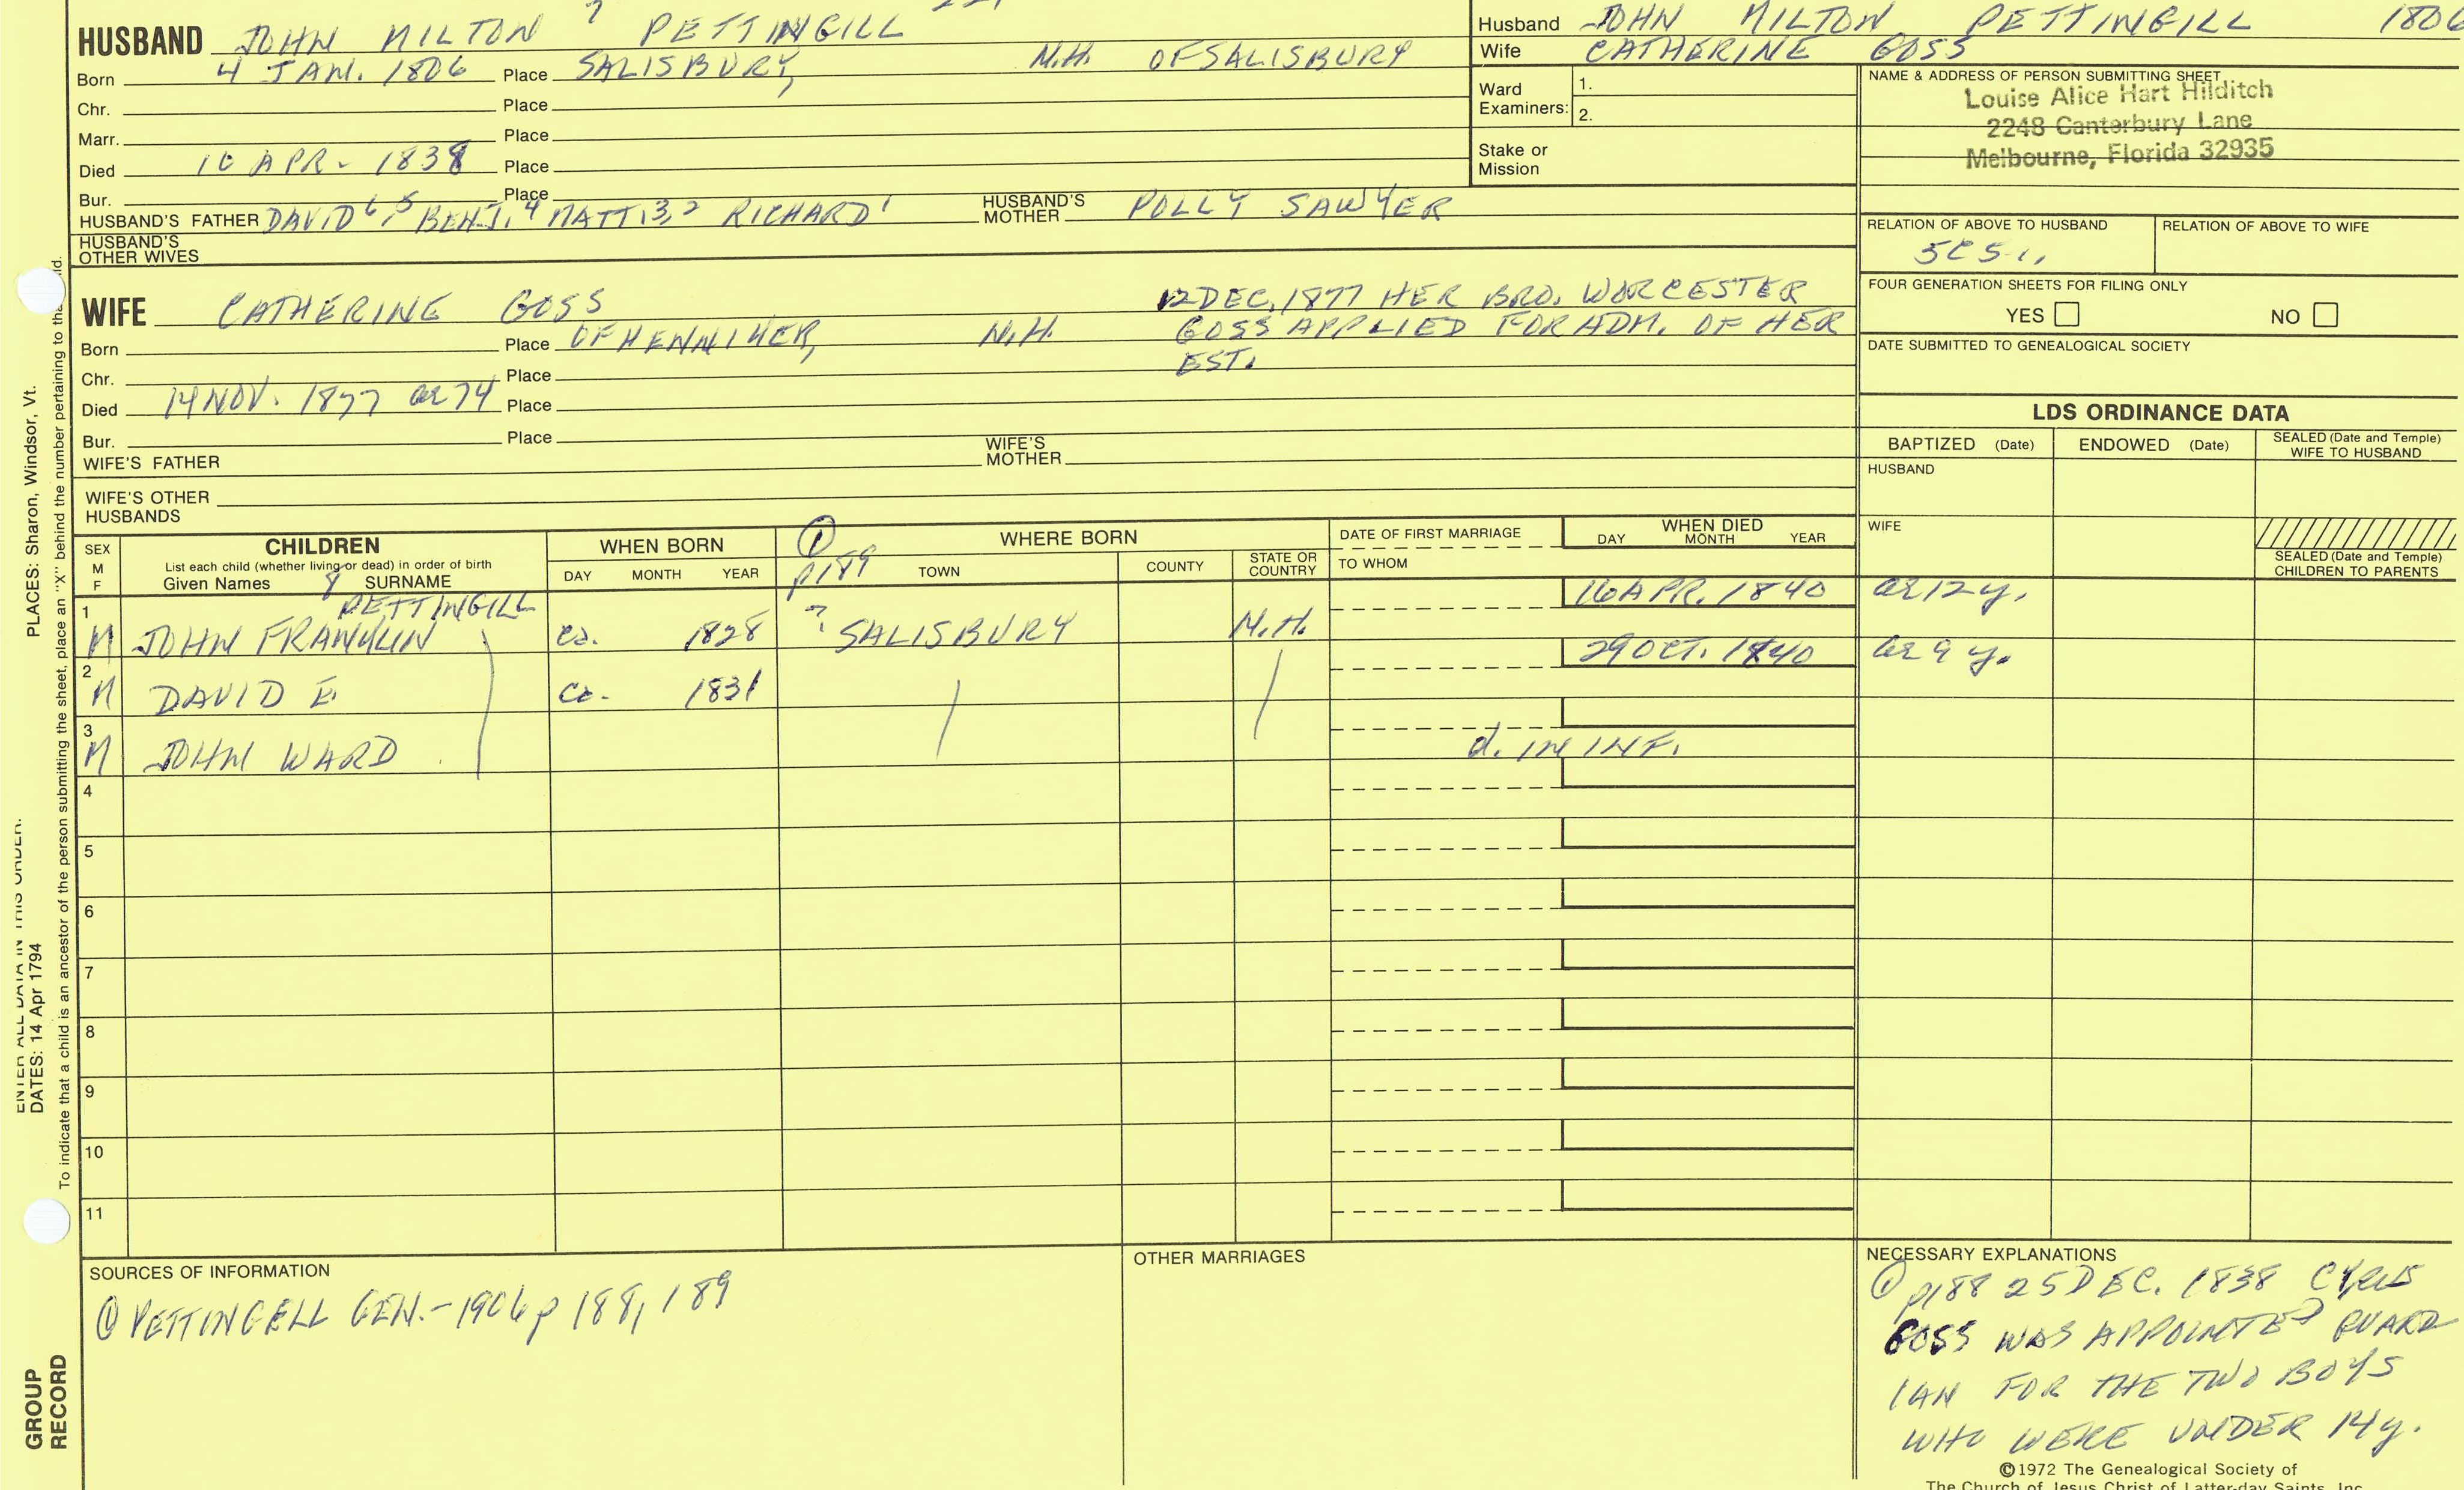 HUSBAND JOHN MILTON 7 PETTINGILL
Born 4 JAN. 1806 Place SALISBURY, N.H. OF SALISBURY
Chr. Place
Marr. Place
Died APR - 1838 Place
Bur. Place
HUSBAND'S FATHER DAVID 6,5 BENJ. 4 MATT. 3,2 RICHARD 1 HUSBAND'S MOTHER POLLY SAWYER
HUSBAND'S OTHER WIVES
WIFE CATHERINE GOSS
12 DEC, 1877 HER BRO. WORCESTER
GOSS APPLIED FOR ADM. OF HER
EST.
Born Place OF HENNIKER, N.H.
Chr. Place
Died 14 NOV. 1877 ae 74 Place
Bur. Place
WIFE'S FATHER WIFE'S MOTHER
WIFE'S OTHER HUSBANDS
Husband JOHN MILTON PETTINGILL 1806
Wife CATHERINE GOSS
Ward Examiners: 1.
2.
Stake or Mission
NAME & ADDRESS OF PERSON SUBMITTING SHEET
Louise Alice Hart Hilditch
2248 Canterbury Lane
Melbourne, Florida 32935
RELATION OF ABOVE TO HUSBAND RELATION OF ABOVE TO WIFE
FOUR GENERATION SHEETS FOR FILING ONLY
YES NO
DATE SUBMITTED TO GENEALOGICAL SOCIETY
LDS ORDINANCE DATA
BAPTIZED (Date) ENDOWED (Date) SEALED (Date and Temple) WIFE TO HUSBAND
HUSBAND
WIFE
SEALED (Date and Temple) CHILDREN TO PARENTS
SEX M F
CHILDREN
List each child (whether living or dead) in order of birth
Given Names SURNAME
8 PETTINGILL
WHEN BORN
DAY MONTH YEAR
① p189
WHERE BORN
TOWN COUNTY STATE OR COUNTRY
DATE OF FIRST MARRIAGE
TO WHOM
WHEN DIED
DAY MONTH YEAR
1 M JOHN FRANKLIN ca. 1828 ? SALISBURY N.H. 16 APR. 1840 ae 12 y.
2 M DAVID E. ca. 1831 29 OCT. 1840 ae 9 y.
3 M JOHN WARD d. IN INF.
4
5
6
7
8
9
10
11
SOURCES OF INFORMATION
① PETTINGELL GEN. - 1906 p 188, 189
OTHER MARRIAGES
NECESSARY EXPLANATIONS
① p188 25 DEC. 1838 CYRUS
GOSS WAS APPOINTED GUARD
IAN FOR THE TWO BOYS
WHO WERE UNDER 14 y.
©1972 The Genealogical Society of
The Church of Jesus Christ of Latter-day Saints, Inc.
PLACES: Sharon, Windsor, Vt.
ENTER ALL DATA IN THIS ORDER:
DATES: 14 Apr 1794
To indicate that a child is an ancestor of the person submitting the sheet, place an "X" behind the number pertaining to
GROUP
RECORD